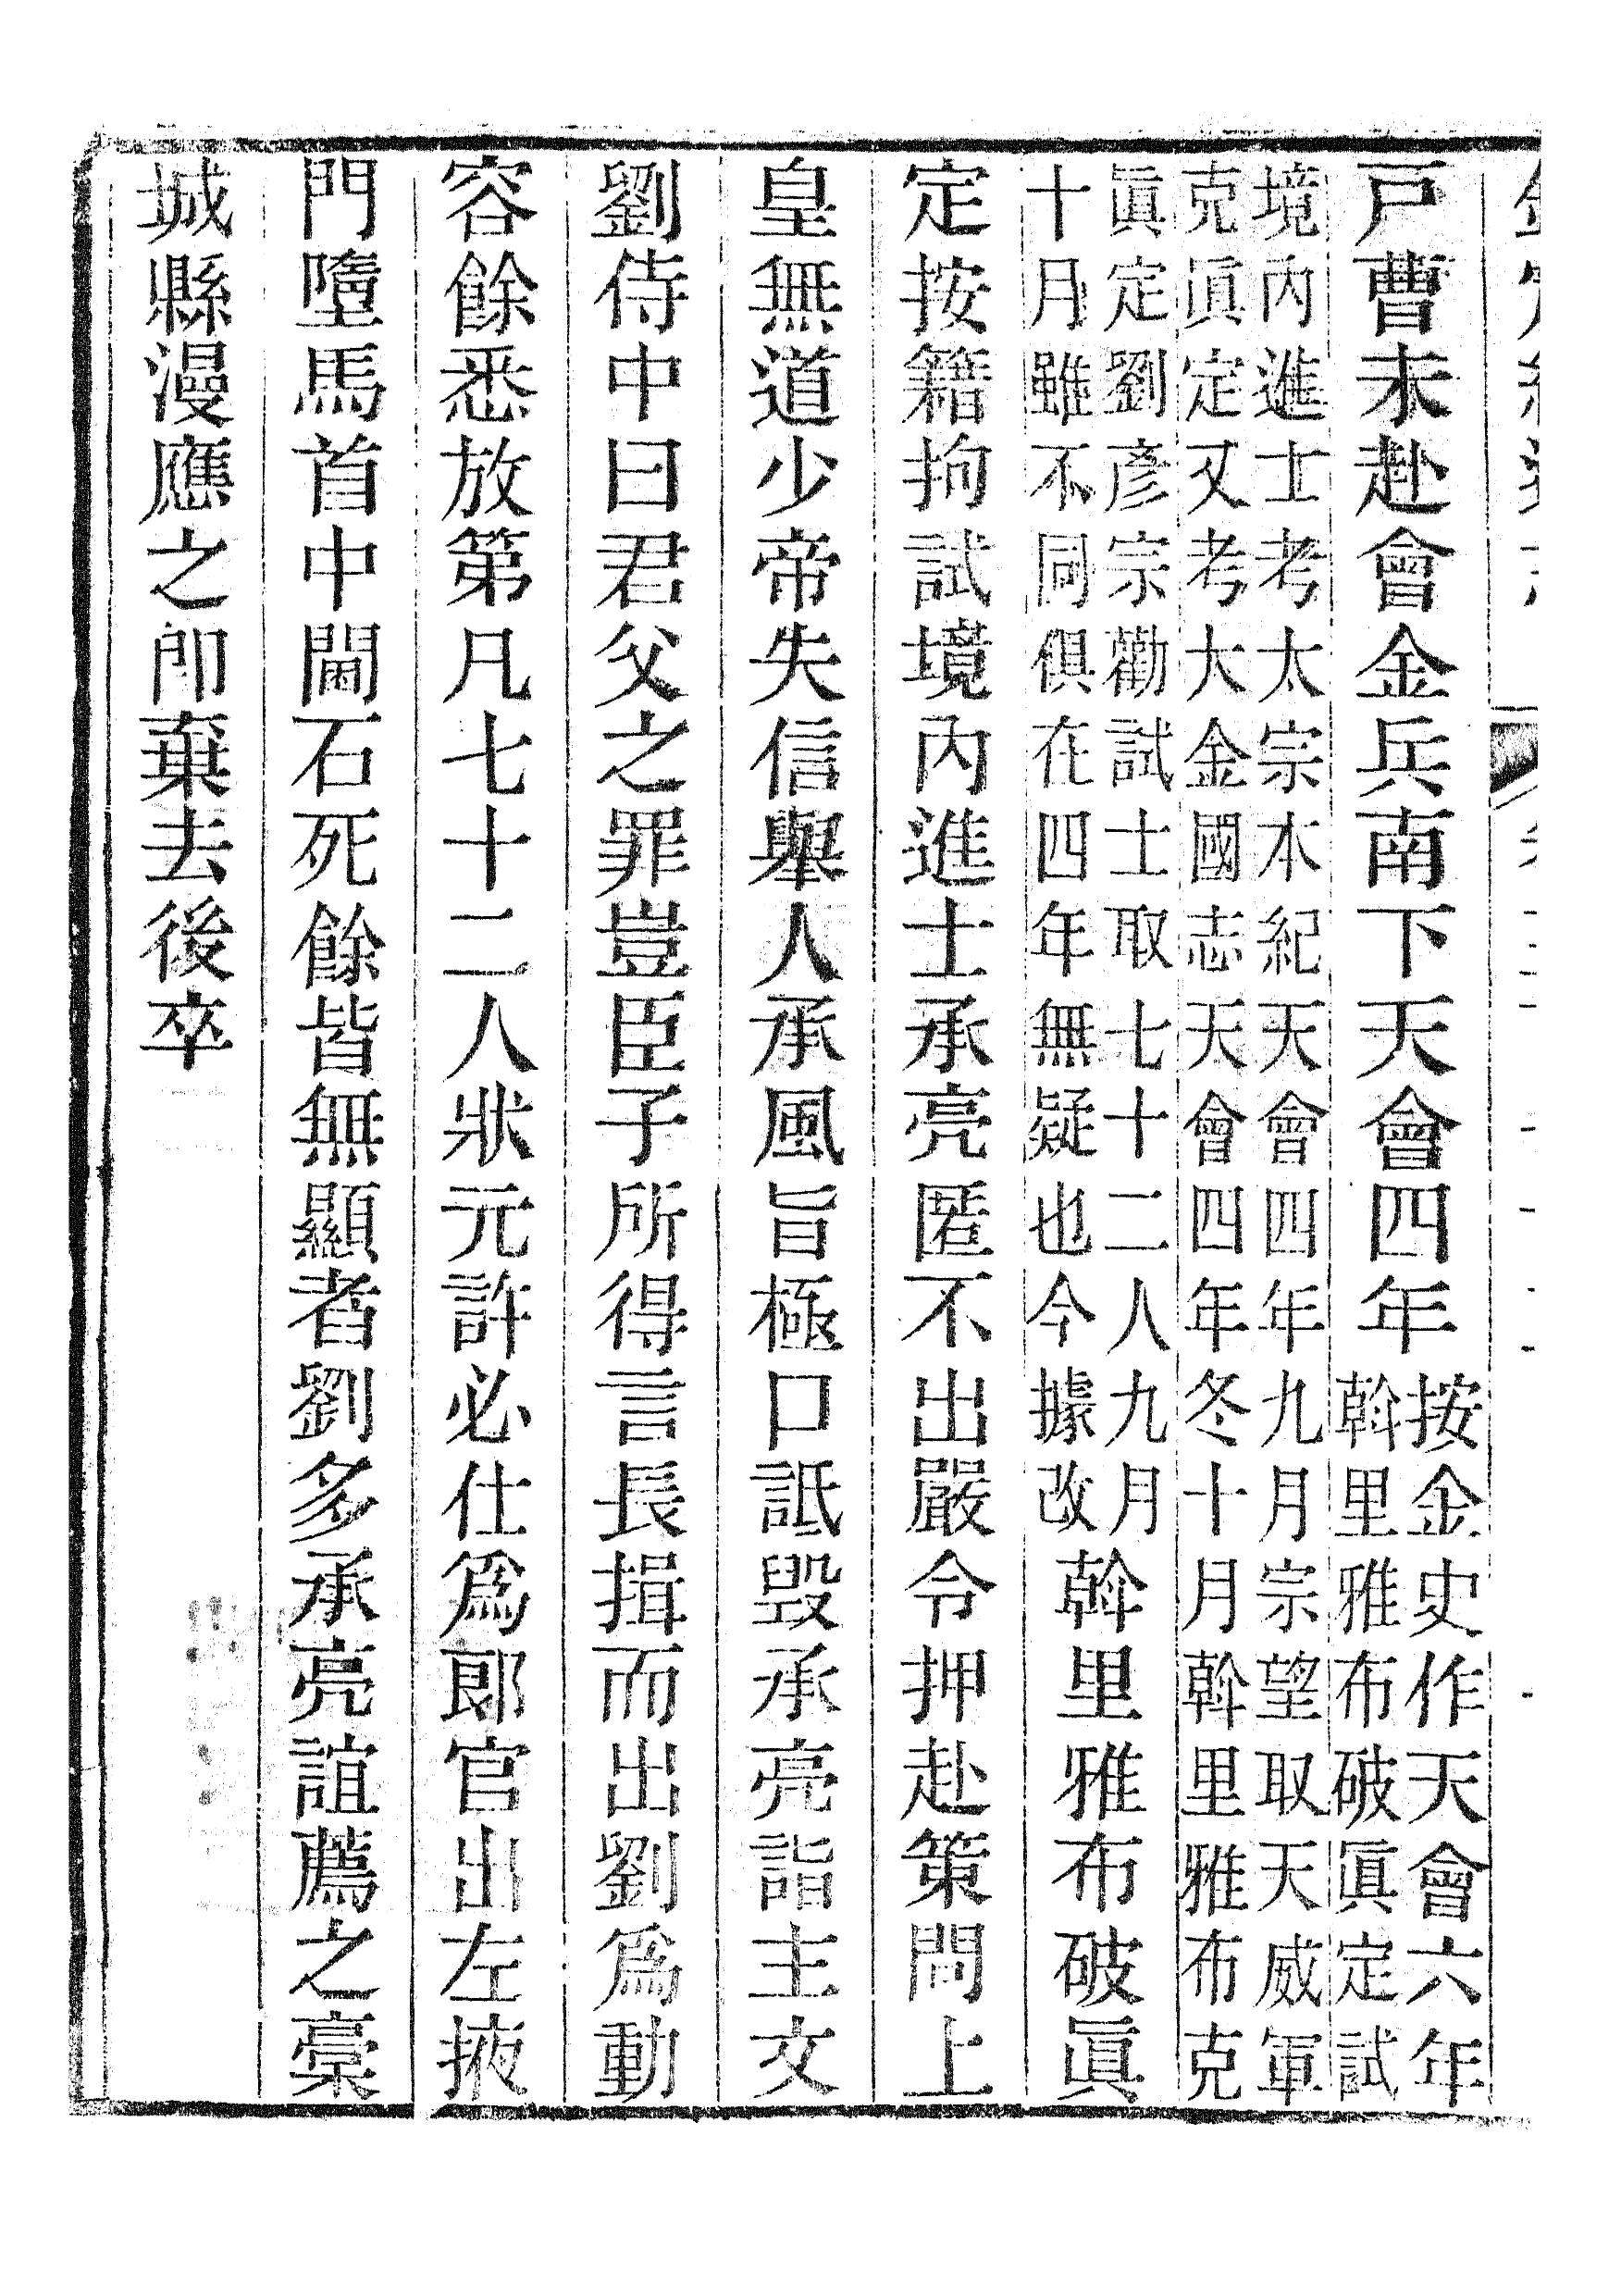 戸曹未赴會金兵南下天會四年按金史作天會六年
斡里雅布破眞定試
境内進士考太宗本紀天會四年九月宗望取天威軍
克眞定又考大金國志天會四年冬十月斡里雅布克
眞定劉彥宗勸試士取七十二人九月
十月雖不同俱在四年無疑也今據改斡里雅布破眞
定按籍拘試境内進士承亮匿不出嚴令押赴策問上
皇無道少帝失信舉人承風旨極口詆毀承亮詣主文
劉侍中曰君父之罪豈臣子所得言長揖而出劉爲動
容餘悉放第凡七十二人狀元許必仕爲郞官出左掖
門墮馬首中閫石死餘皆無顯者劉多承亮誼薦之藁
城縣漫應之卽棄去後卒